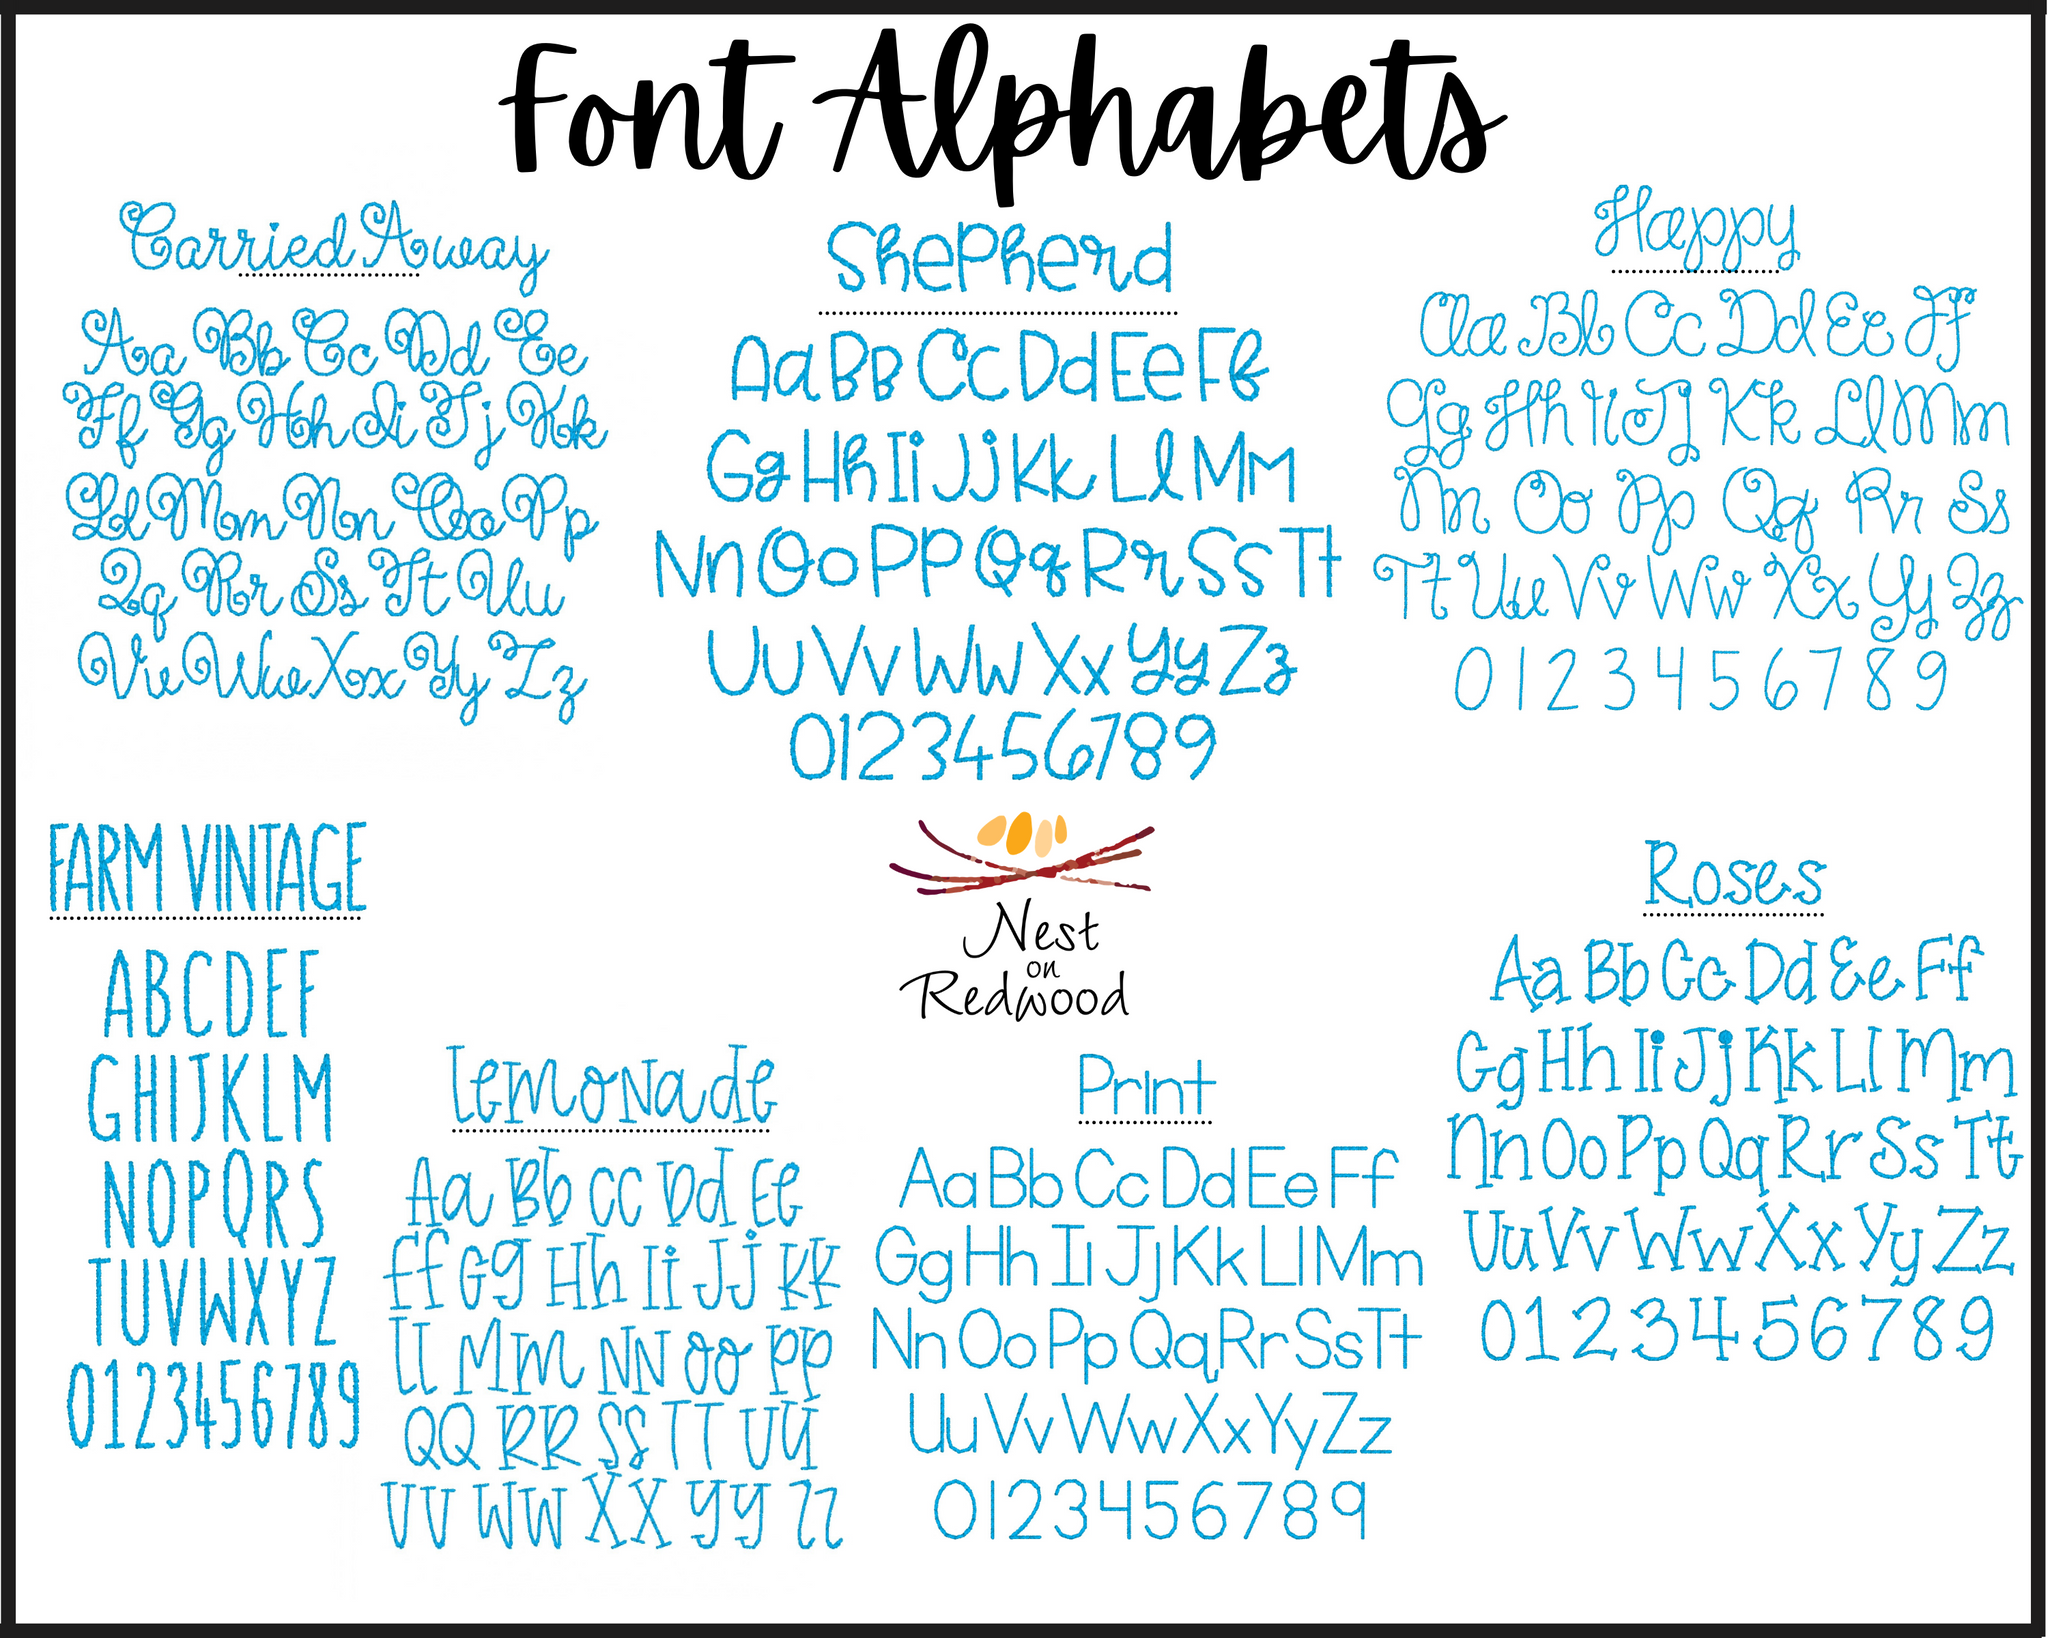 Font Alphabets
Carried Away
Aa Bb Cc Dd Ee
Ff Gg Hh Ii Jj Kk
Ll Mm Nn Oo Pp
Qq Rr Ss Tt Uu
Vv Ww Xx Yy Zz
Shepherd
Aa Bb Cc Dd Ee Ff
Gg Hh Ii Jj Kk Ll Mm
Nn Oo Pp Qq Rr Ss Tt
Uu Vv Ww Xx Yy Zz
0123456789
Happy
Aa Bb Cc Dd Ee Ff
Gg Hh Ii Jj Kk Ll Mm
Nn Oo Pp Qq Rr Ss
Tt Uu Vv Ww Xx Yy Zz
0123456789
FARM VINTAGE
ABCDEF
GHIJKLM
NOPQRS
TUVWXYZ
0123456789
Nest
on
Redwood
Lemonade
Aa Bb Cc Dd Ee
Ff Gg Hh Ii Jj Kk
Ll Mm Nn Oo Pp
Qq Rr Ss Tt Uu
Vv Ww Xx Yy Zz
Print
Aa Bb Cc Dd Ee Ff
Gg Hh Ii Jj Kk Ll Mm
Nn Oo Pp Qq Rr Ss Tt
Uu Vv Ww Xx Yy Zz
0123456789
Roses
Aa Bb Cc Dd Ee Ff
Gg Hh Ii Jj Kk Ll Mm
Nn Oo Pp Qq Rr Ss Tt
Uu Vv Ww Xx Yy Zz
0123456789